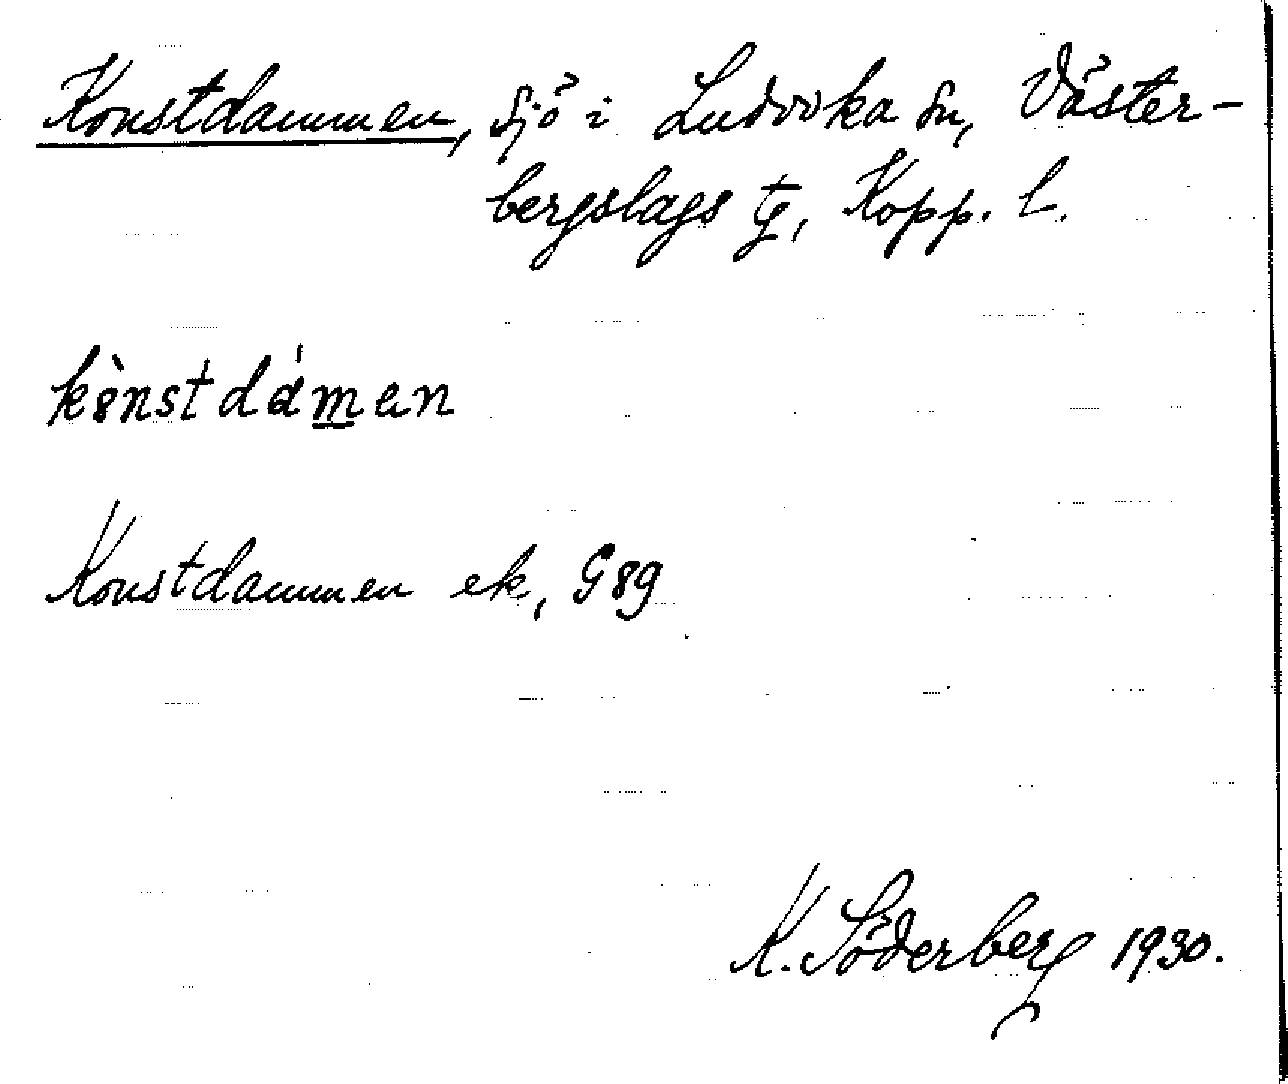 Konstdammen, sjö i Ludvika sn, Väster-
bergslags tg, Kopp. l.
kònstdámen
Konstdammen ek, G 89
K. Söderberg 1930.